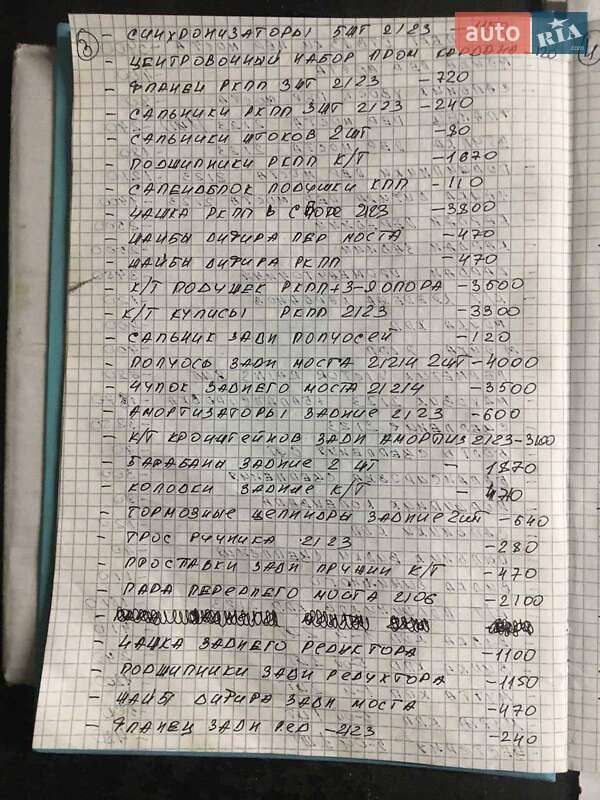 auto RIA
③ - СИНХРОНИЗАТОРЫ 5ШТ 2123
- ЦЕНТРОВОЧНЫЙ НАБОР ПРОМ
- ФЛАНЕЦ РКПП 3ШТ 2123 -720
- САЛЬНИКИ РКПП 3ШТ 2123 -240
- САЛЬНИКИ ШТОКОВ 2ШТ -80
- ПОДШИПНИКИ РКПП К/Т -1670
- САЛЕНДБЛОК ПОДУШКИ КПП -110
- ЧАШКА РКПП В СБОРЕ 2123 -3800
- ШАЙБЫ ДИФИРА ПЕР МОСТА -470
- ШАЙБЫ ДИФИРА РКПП -470
- К/Т ПОДУШЕК РКПП+3-Я ОПОРА -3500
- К/Т КУЛИСЫ РКПП 2123 -3300
- САЛЬНИК ЗАДН ПОЛУОСЕЙ -120
- ПОЛУОСЬ ЗАДН МОСТА 21214 2ШТ -4000
- ЧУЛОК ЗАДНЕГО МОСТА 21214 -3500
- АМОРТИЗАТОРЫ ЗАДНИЕ 2123 -600
- К/Т КРОНШТЕЙНОВ ЗАДН АМОРТИЗ 2123-3100
- БАРАБАНЫ ЗАДНИЕ 2 ШТ - 1870
- КОЛОДКИ ЗАДНИЕ К/Т - 470
- ТОРМОЗНЫЕ ЦЕЛИНДРЫ ЗАДНИЕ 2ШТ -640
- ТРОС РУЧНИКА 2123 -280
- ПРОСТАВКИ ЗАДН ПРУЖИН К/Т -470
- ПАРА ПЕРЕДНЕГО МОСТА 2106 -2100
- ЧАШКА ЗАДНЕГО РЕДУКТОРА -1100
- ПОДШИПНИКИ ЗАДН РЕДУКТОРА -1150
- ШАЙБ ДИФИРА ЗАДН МОСТА -470
- ФЛАНЕЦ ЗАДН РЕД -2123 -240